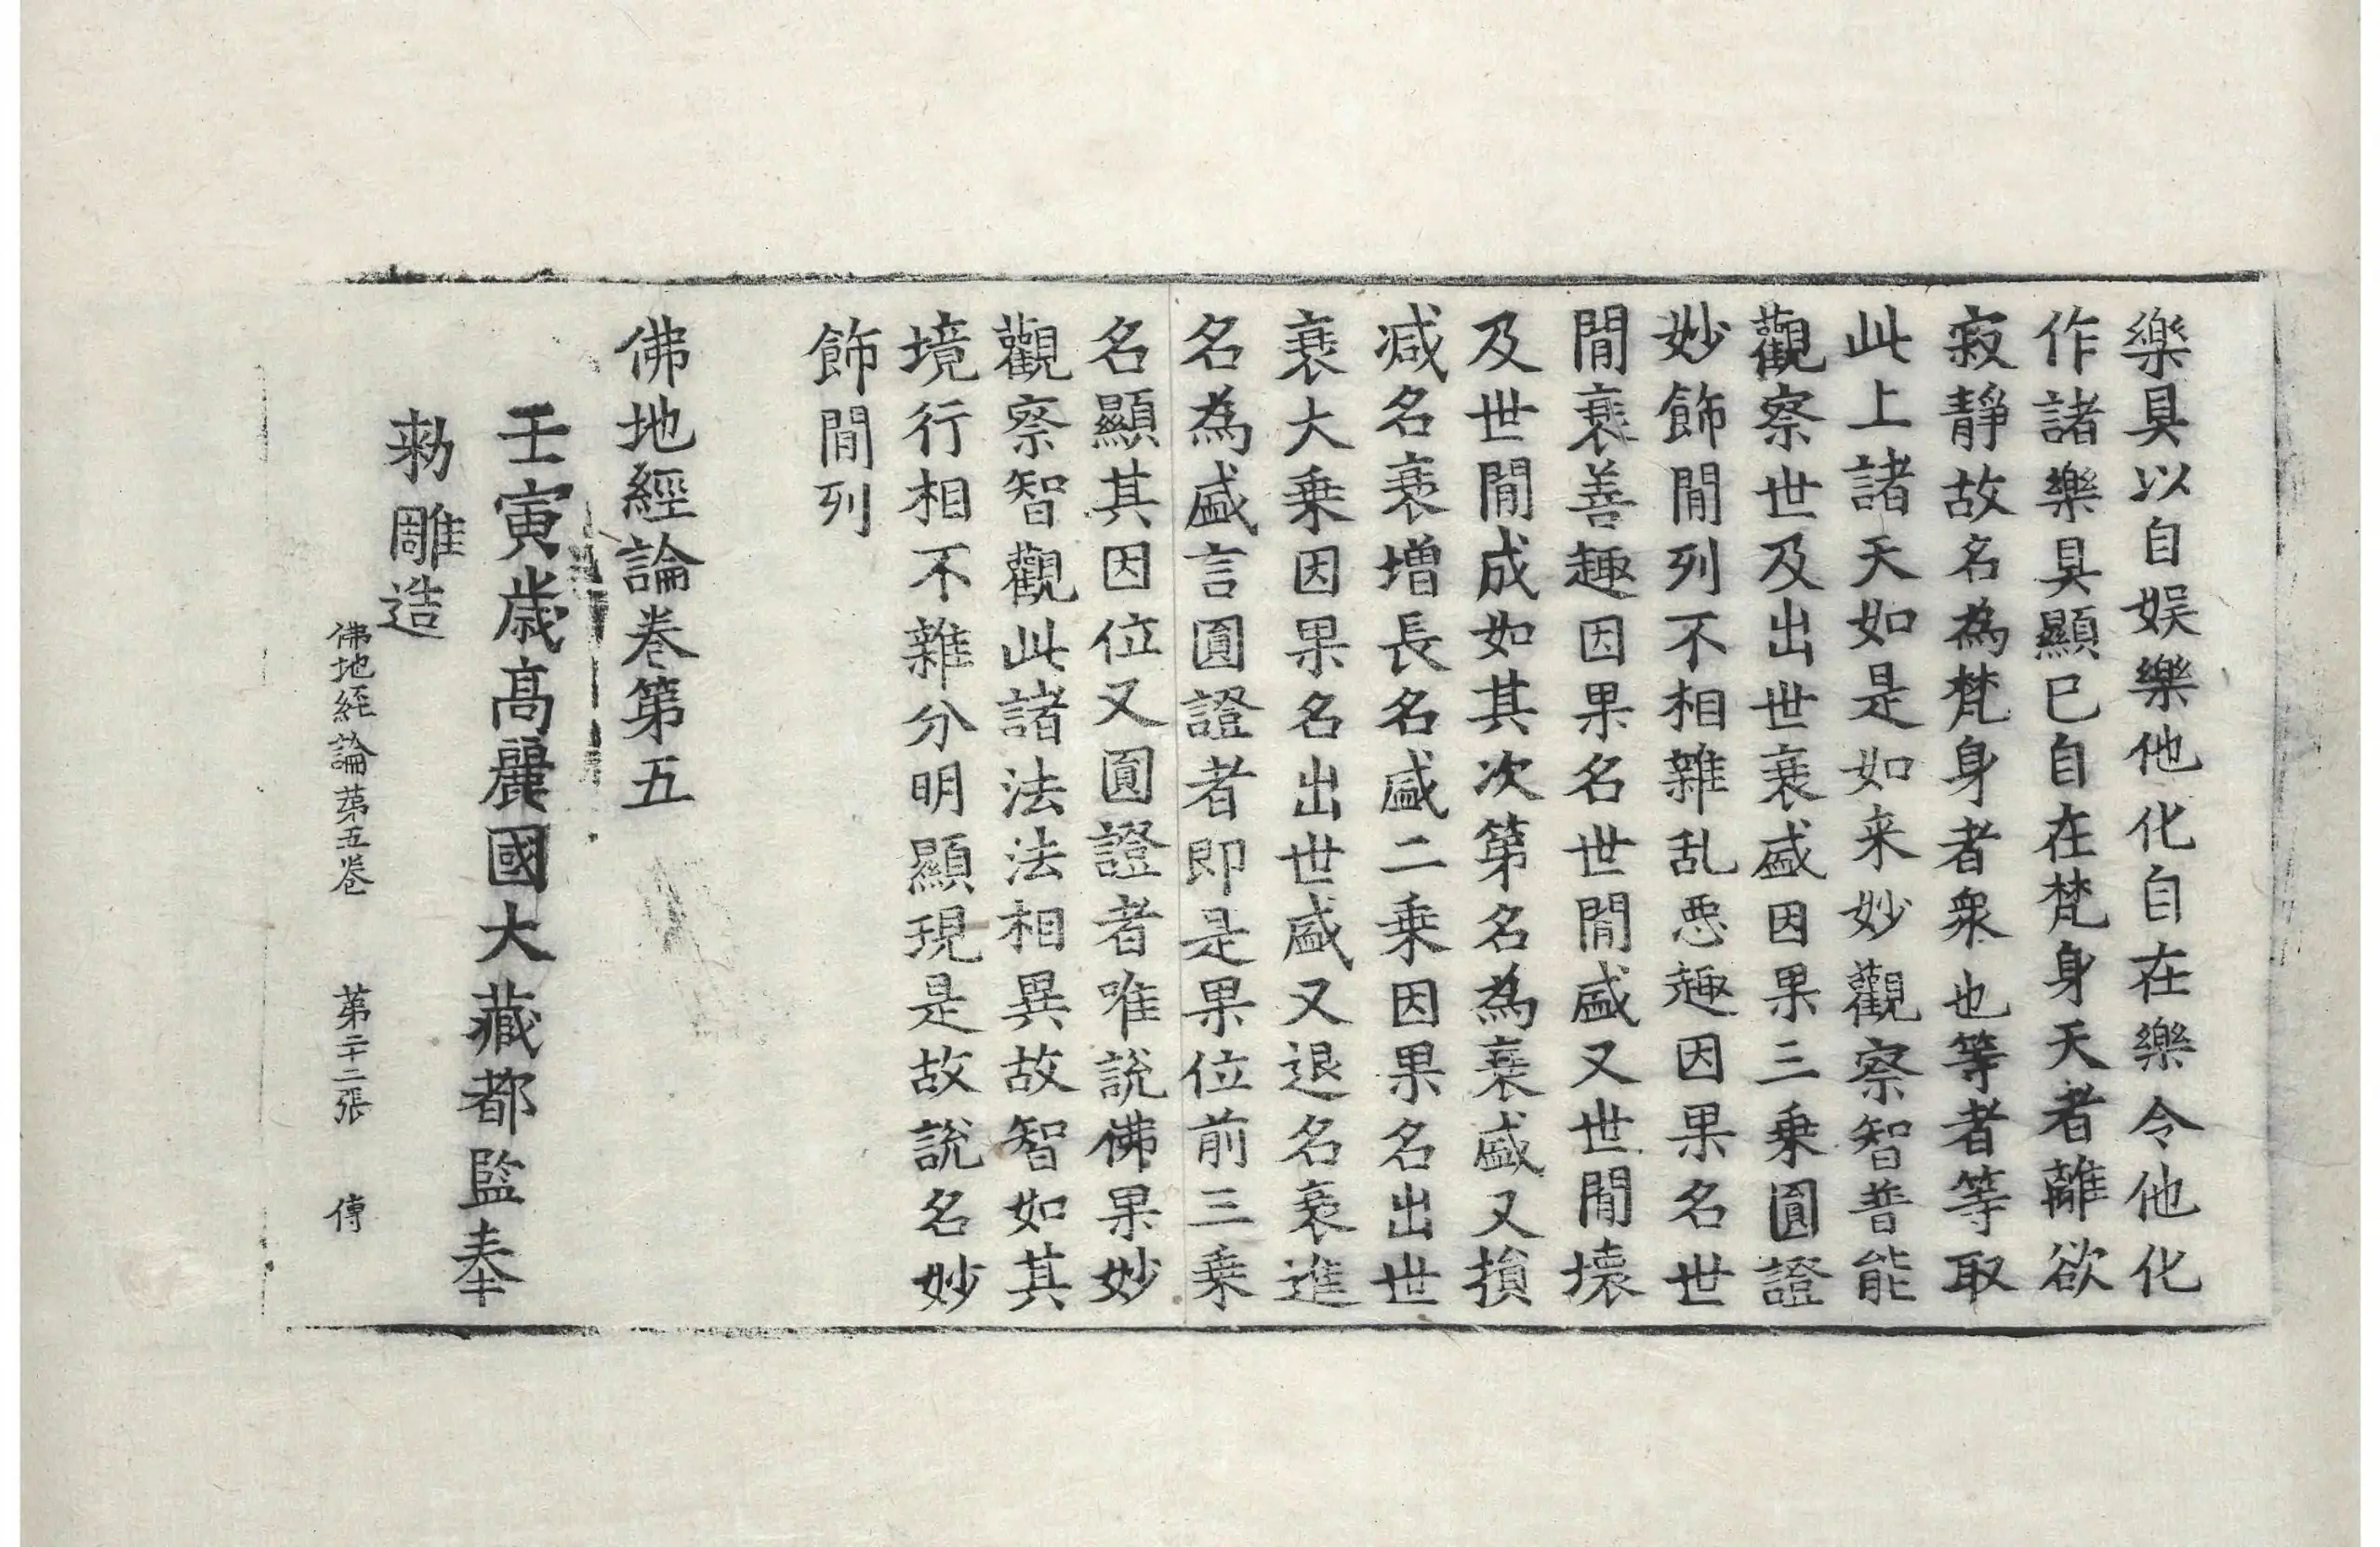 樂具以自娱樂他化自在樂令他化
作諸樂具顯已自在梵身天者離欲
寂靜故名為梵身者衆也等者等取
此上諸天如是如来妙觀察智普能
觀察世及出世衰盛因果三乗圓證
妙飾閒列不相雜乱惡趣因果名世
閒衰善趣因果名世閒盛又世閒壞
及世閒成如其次第名為衰盛又損
減名衰增長名盛二乗因果名出世
衰大乗因果名出世盛又退名衰進
名為盛言圓證者即是果位前三乗
名顯其因位又圓證者唯說佛果妙
觀察智觀此諸法法相異故智如其
境行相不雜分明顯現是故說名妙
飾閒列
佛地經論卷第五
壬寅歳高麗國大藏都監奉
勑雕造
佛地経論第五卷 第二十二張 傳